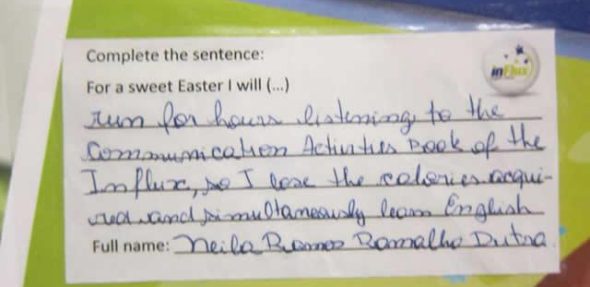 Complete the sentence:
inFlux
For a sweet Easter I will (...)
run for hours listening to the
Communication Activities Book of the
Influx, so I lose the calories acqui-
red and simultaneously learn English
Full name: Neila Ramos Ramalho Dutra